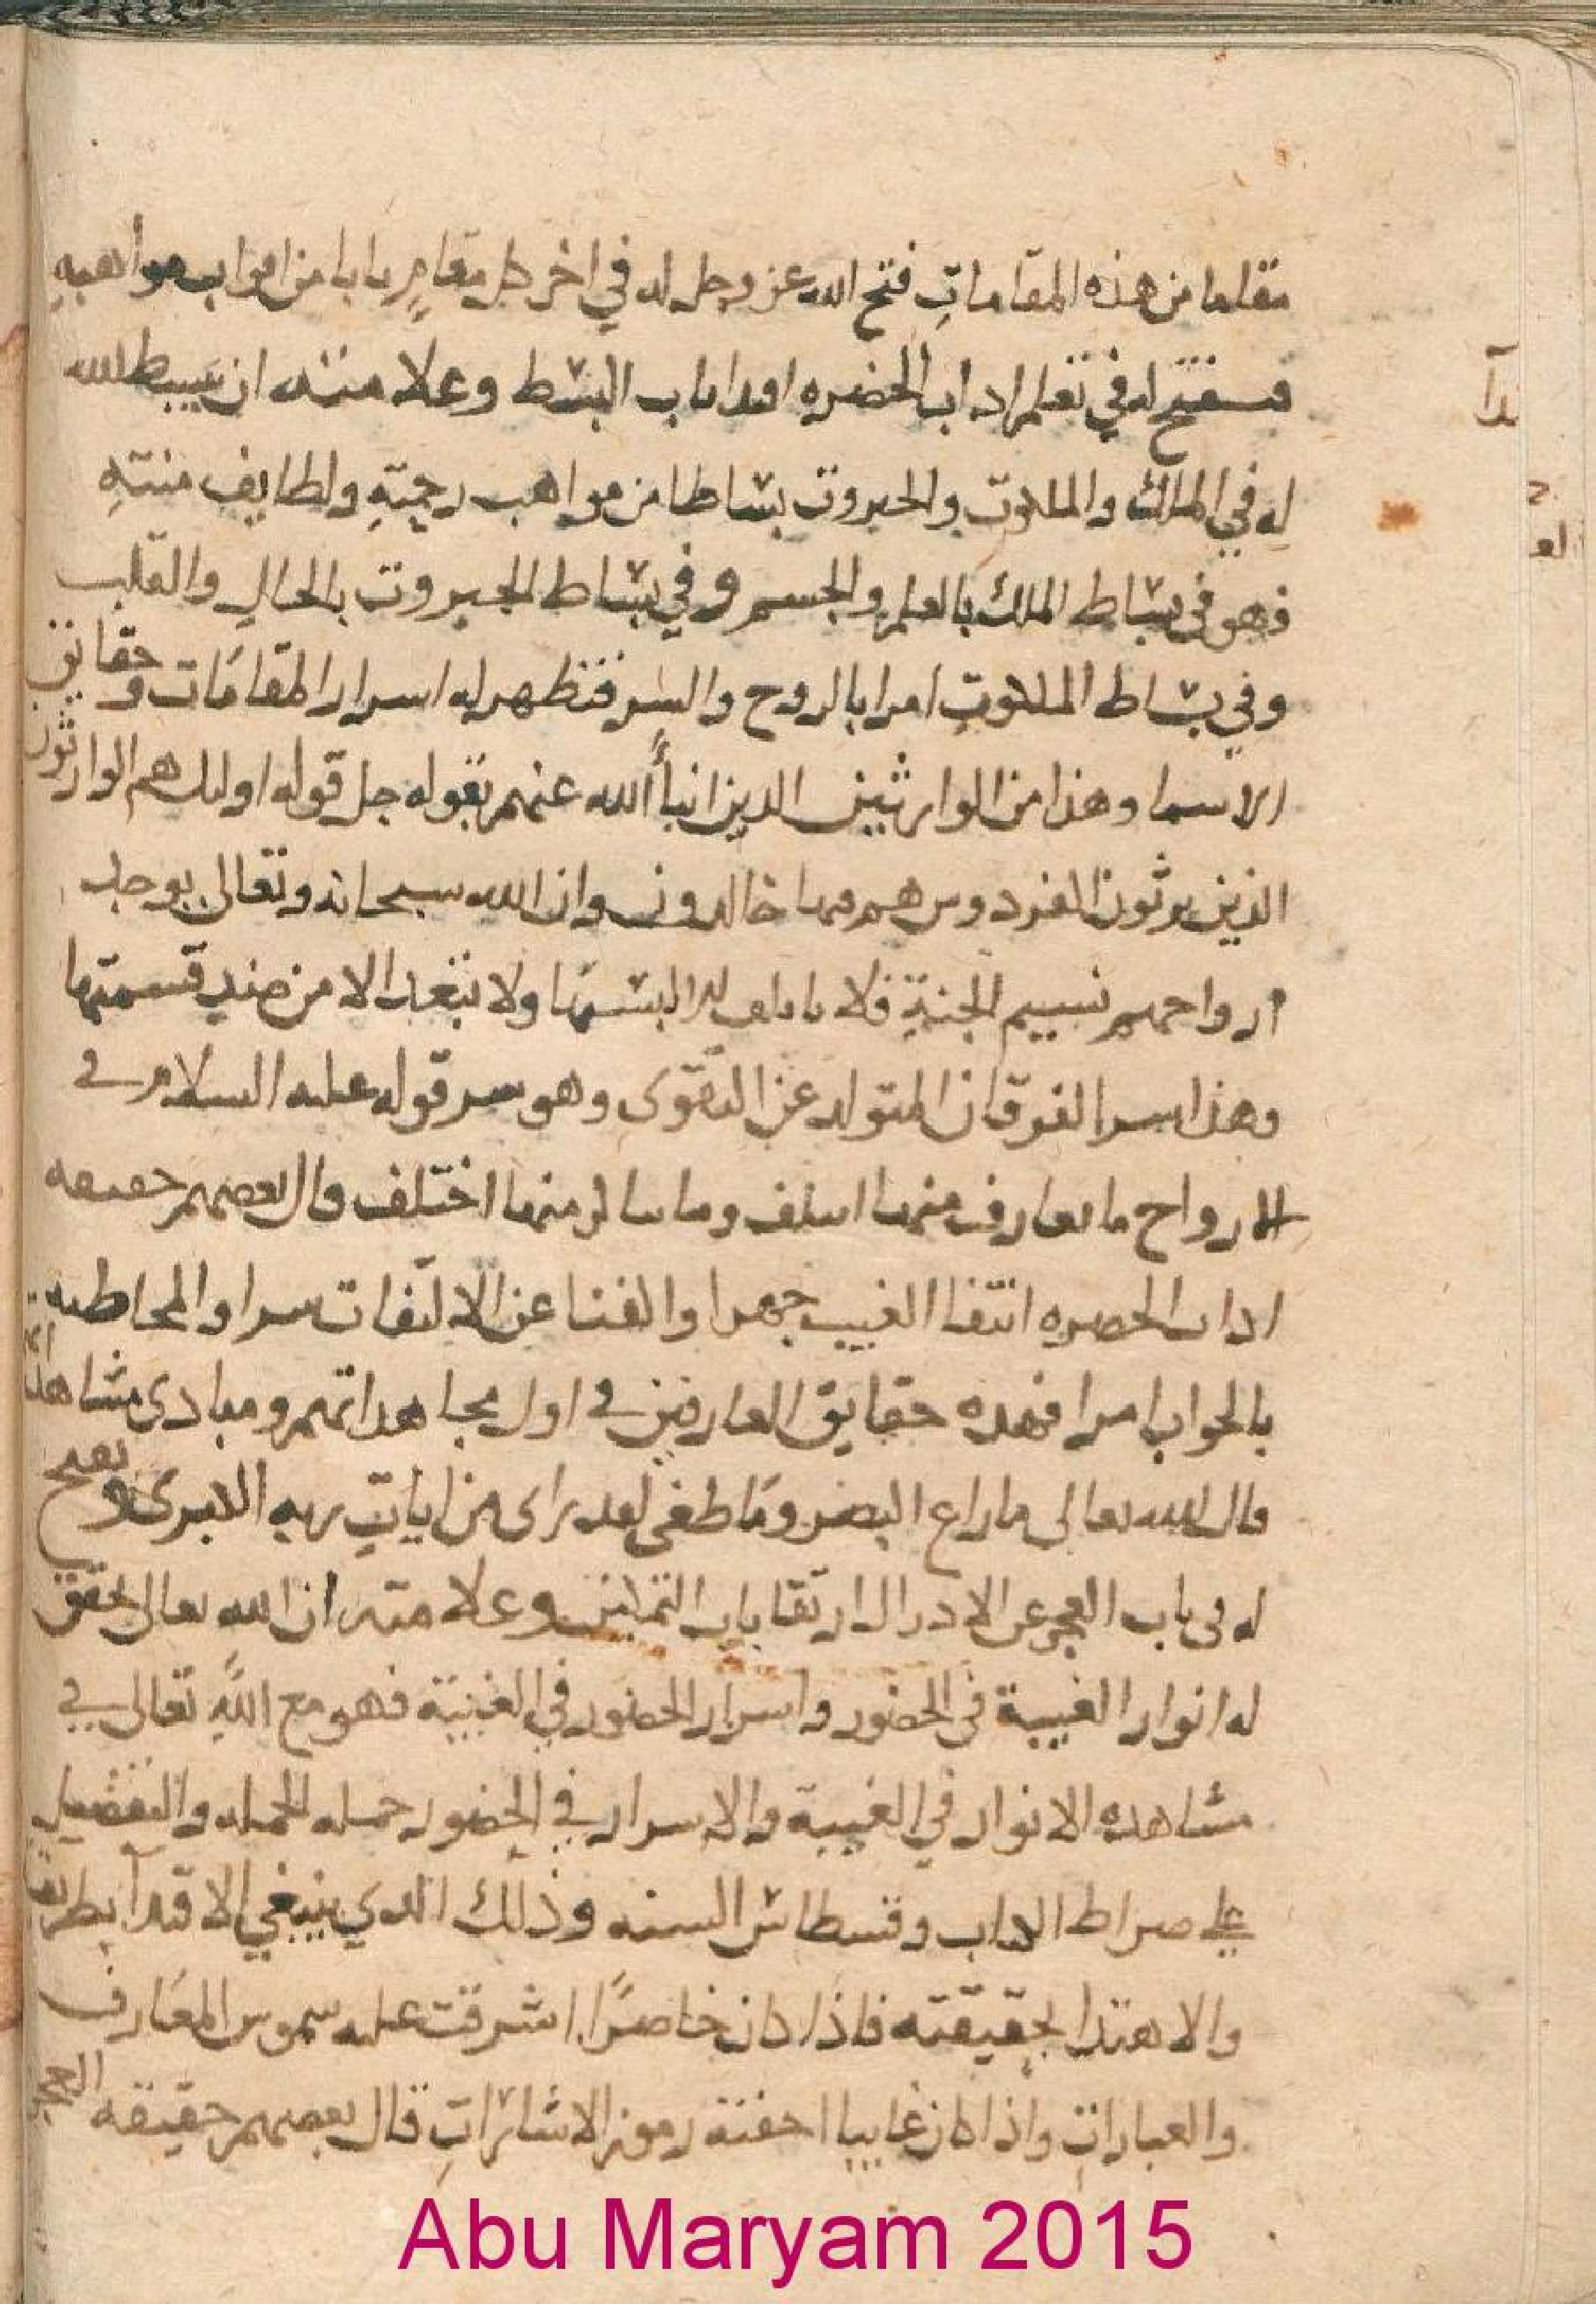 مقاما من هذه المقامات فتح الله عز وجل له في اخر كل مقام بابا من ابواب مواهبه
فيفتح له في تعلم اداب الحضره ابدا باب البسط وعلامته ان يبسط الله
له في الملك والملكوت والجبروت بساطا من مواهب رحمته ولطايف منته
فهو في بساط الملك بالعلم والجسم وفي بساط الجبروت بالحال والقلب
وفي بساط الملكوت امرا بالروح والسر فتظهر له اسرار المقامات وحقايق
الاسما وهذا من الوارثين الذين انبأ الله عنهم بقوله جل قوله اوليك هم الوارثون
الذين يرثون الفردوس هم فيها خالدون وان الله سبحانه وتعالى يوجد
ارواحهم نسيم الجنة فلا الا بشمها ولا الا من قسمتها
وهذا سر الفرقان المتولد عن التقوى وهو سر قوله عليه السلام في
الارواح ما تعارف منها ايتلف وما تناكر منها اختلف وقال بعضهم حقيقه
اداب الحضره انتفا الغيب جهرا والفنا عن الالتفات سرا والمخاطبه
بالجواب امرا فهذه حقايق العارفين في اول مجاهداتهم ومبادى مشاهداتهم
قال الله تعالى ما زاغ البصر وما طغى لقد راى من ايات ربه الكبرى ويفتح
له في باب العجز عن الادراك ارتقا باب التمكين وعلامته ان الله تعالى يحقق
له انوار الغيبة في الحضور واسرار الحضور في الغيبة فهو مع الله تعالى في
مشاهده الانوار في الغيبة والاسرار في الحضور جمله الجمله والتفصيل
على صراط الكتاب وقسطاس السنه وذلك الذي ينبغي الاقتدآ بطريقته
والاهتدا بحقيقته فاذا كان حاضرًا اشرقت عليه شموس المعارف
والعبارات واذا كان غايبا اخفته رموز الاشارات قال بعضهم حقيقه العجز
Abu Maryam 2015